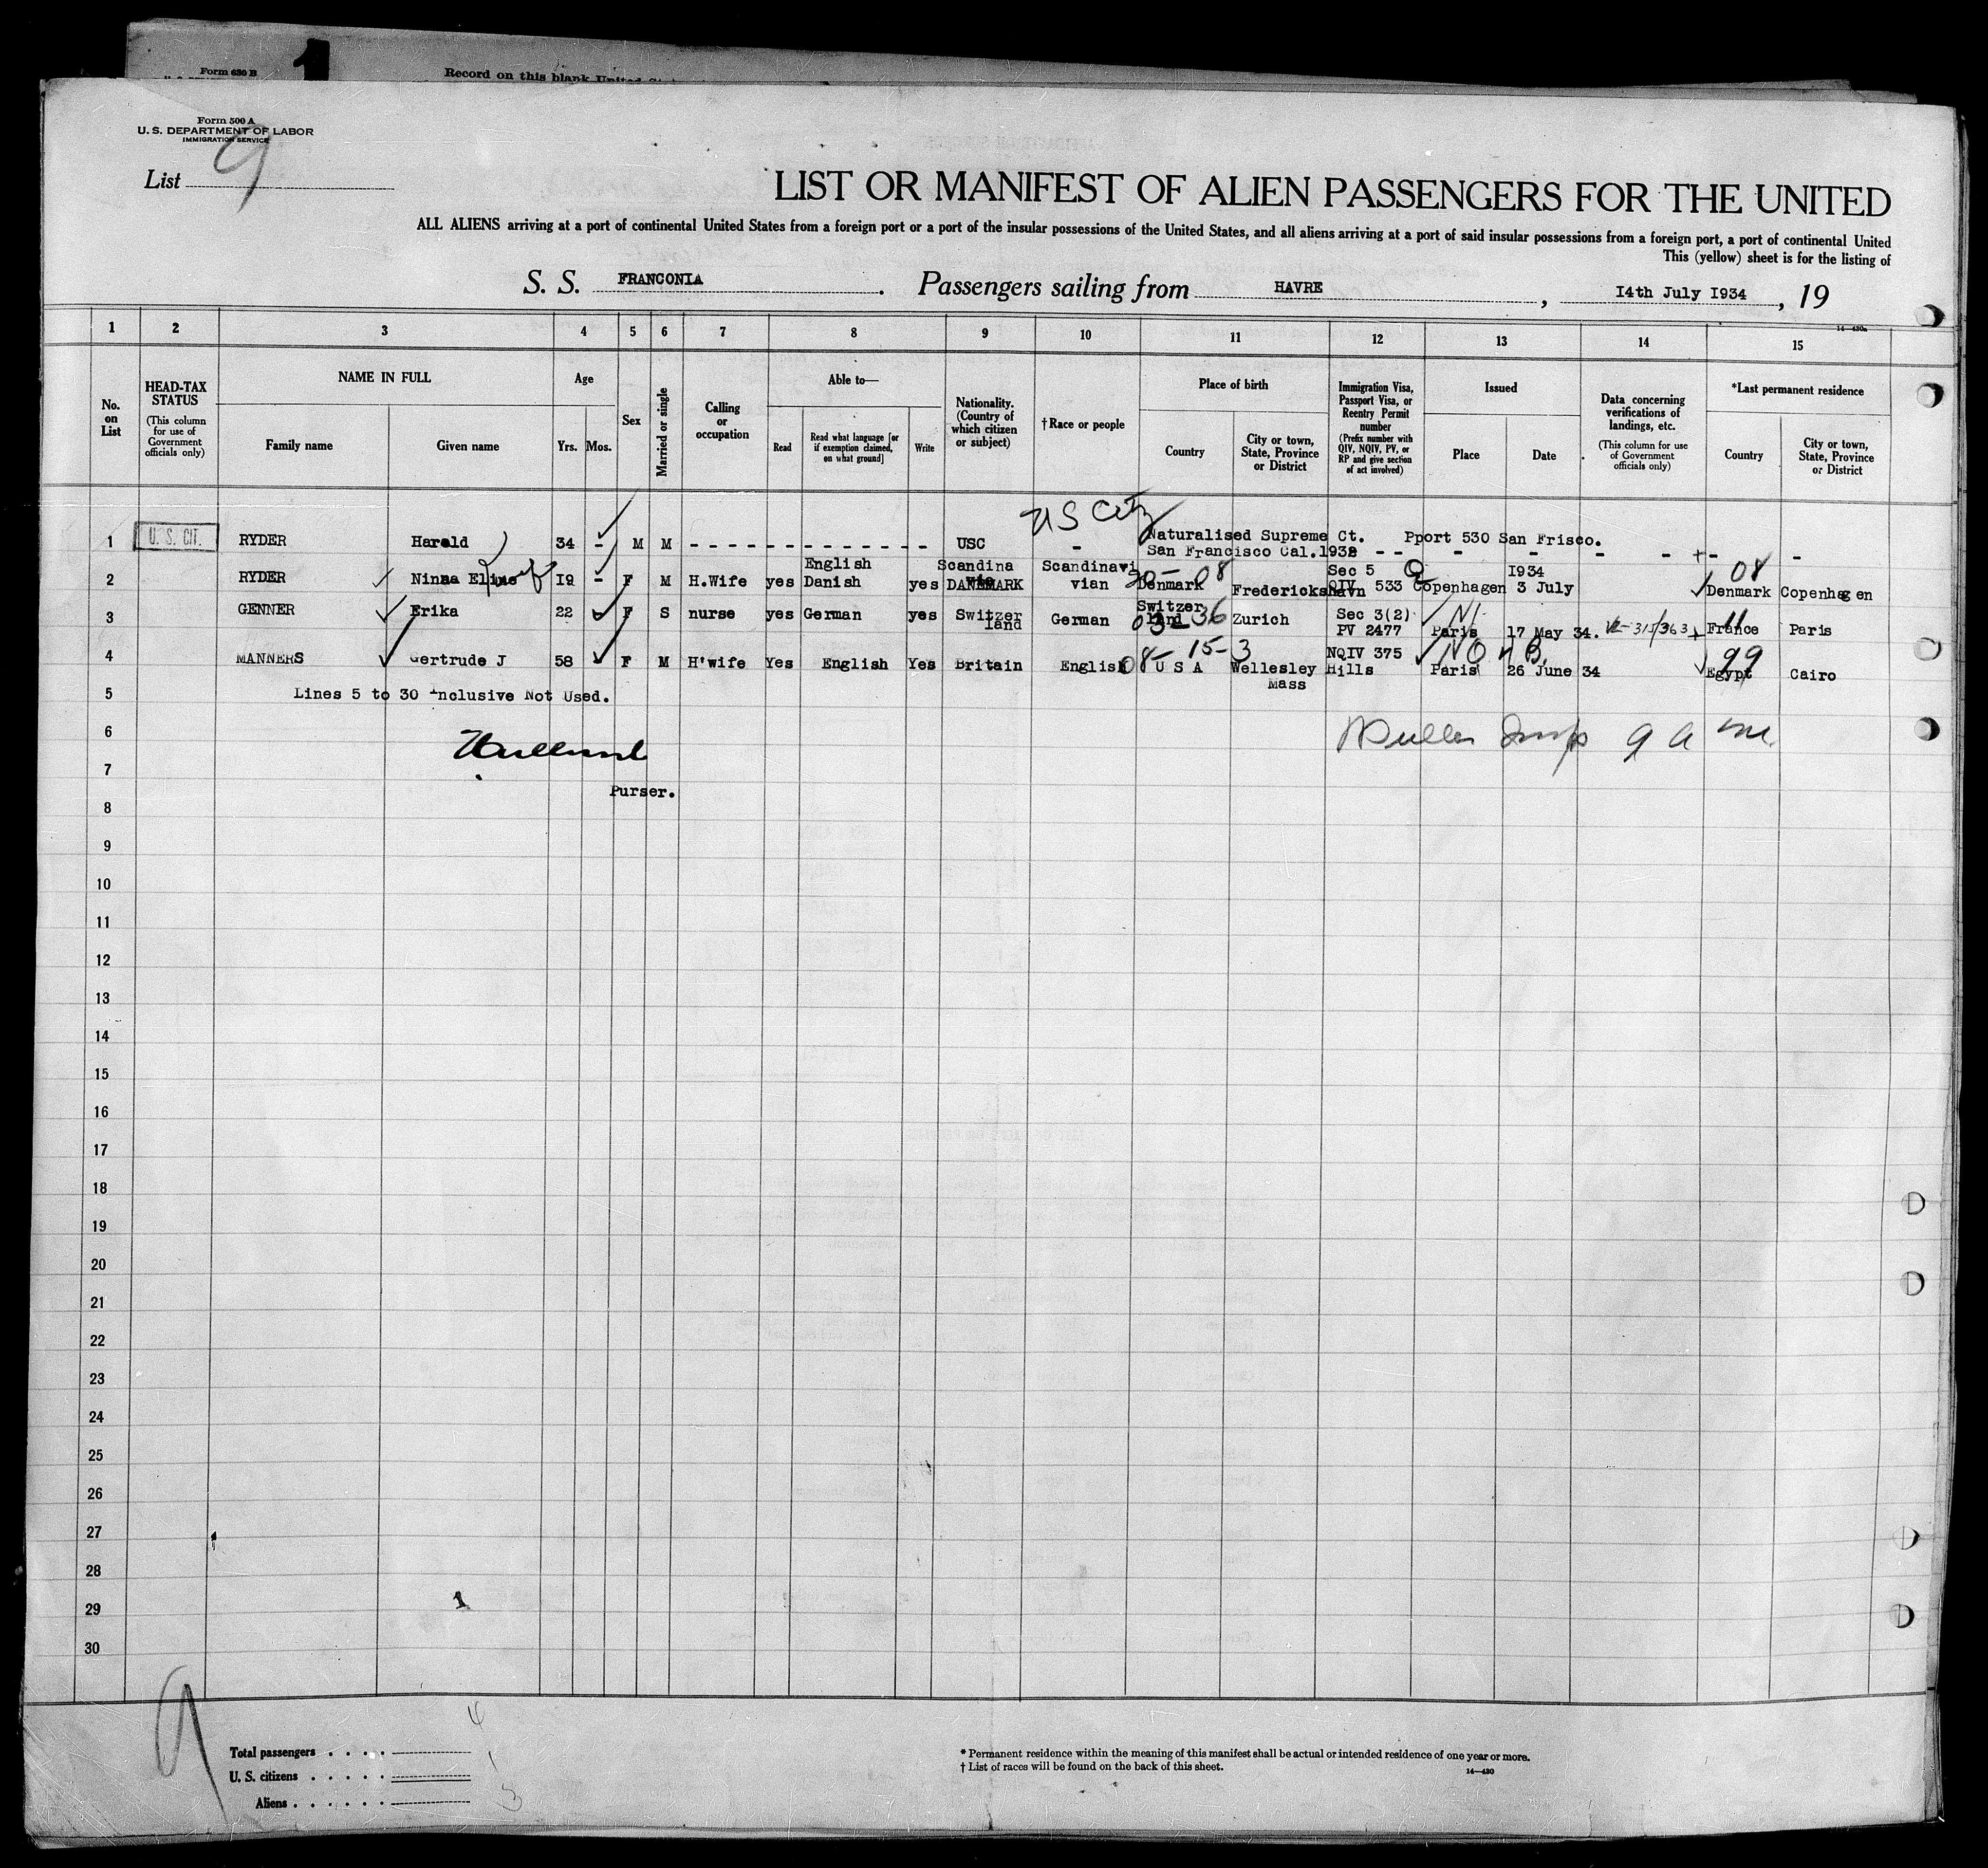 Form 630 B
Record on this blank United
Form 500 A
U. S. DEPARTMENT OF LABOR
IMMIGRATION SERVICE
List 9
LIST OR MANIFEST OF ALIEN PASSENGERS FOR THE UNITED
ALL ALIENS arriving at a port of continental United States from a foreign port or a port of the insular possessions of the United States, and all aliens arriving at a port of said insular possessions from a foreign port, a port of continental United
This (yellow) sheet is for the listing of
S. S. FRANCONIA. Passengers sailing from HAVRE, 14th July 1934, 19
14—430a
1 2 3 4 5 6 7 8 9 10 11 12 13 14 15
No. on List
HEAD-TAX STATUS
(This column for use of Government officials only)
NAME IN FULL
Family name Given name
Age
Yrs. Mos.
Sex
Married or single
Calling or occupation
Able to—
Read
Read what language [or if exemption claimed, on what ground]
Write
Nationality. (Country of which citizen or subject)
†Race or people
Place of birth
Country
City or town, State, Province or District
Immigration Visa, Passport Visa, or Reentry Permit number
(Prefix number with QIV, NQIV, PV, or RP and give section of act involved)
Issued
Place Date
Data concerning verifications of landings, etc.
(This column for use of Government officials only)
*Last permanent residence
Country
City or town, State, Province or District
US City
1 U. S. CIT. RYDER Harold 34 - M M - - - - - - - - - - - - - USC - Naturalised Supreme Ct. Pport 530 San Frisco.
San Francisco Cal.1932 - - - - - - - -
English Scandina Scandinavi Sec 5 Q 1934 08
2 RYDER Ninna 19 - F M H.Wife yes Danish yes DANEMARK vian 08 Denmark Frederickshavn QIV 533 Copenhagen 3 July Denmark Copenhagen
3 GENNER Erika 22 F S nurse yes German yes Switzer land German Switzer land 03-36 Zurich Sec 3(2) PV 2477 Paris 17 May 34. France 11 Paris
4 MANNERS Gertrude J 58 F M H'wife Yes English Yes Britain English 08-15-3 U S A Wellesley Hills Mass NQIV 375 Paris 26 June 34 99 Egypt Cairo
5 Lines 5 to 30 Inclusive Not Used.
6
7
Purser.
8
9
10
11
12
13
14
15
16
17
18
19
20
21
22
23
24
25
26
27
28
29 1
30
9
Total passengers . . . . 4
U. S. citizens . . . . . 1
Aliens . . . . . . 3
* Permanent residence within the meaning of this manifest shall be actual or intended residence of one year or more.
† List of races will be found on the back of this sheet.
14—430